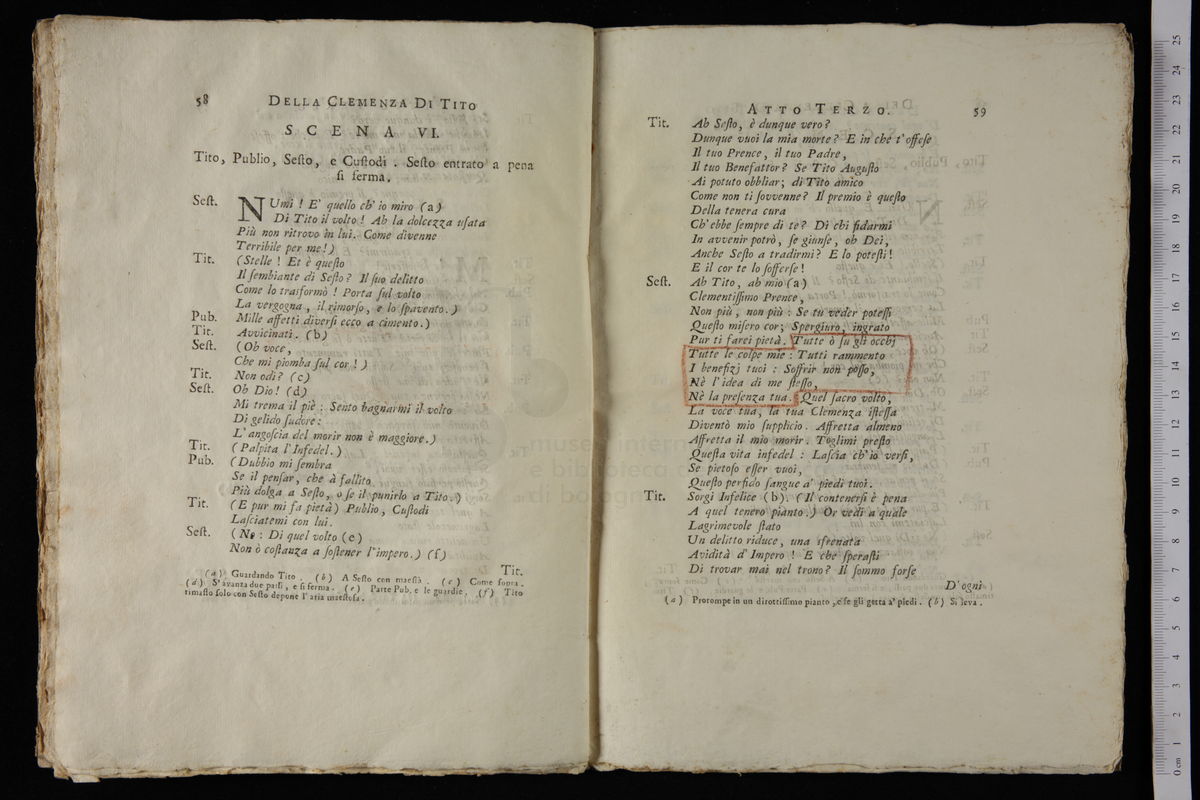 58 DELLA CLEMENZA DI TITO
SCENA VI.
Tito, Publio, Seſto, e Cuſtodi. Seſto entrato a pena
ſi ferma.
Seſt. NUmi! E' quello ch' io miro (a)
Di Tito il volto! Ah la dolcezza uſata
Più non ritrovo in lui. Come divenne
Terribile per me!)
Tit. (Stelle! Et è queſto
Il ſembiante di Seſto? Il ſuo delitto
Come lo trasformò! Porta ſul volto
La vergogna, il rimorſo, e lo ſpavento.)
Pub. Mille affetti diverſi ecco a cimento.)
Tit. Avvicinati. (b)
Seſt. (Oh voce,
Che mi piomba ſul cor!)
Tit. Non odi? (c)
Seſt. Oh Dio! (d)
Mi trema il piè: Sento bagnarmi il volto
Di gelido ſudore:
L'angoſcia del morir non è maggiore.)
Tit. (Palpita l'Infedel.)
Pub. (Dubbio mi ſembra
Se il penſar, che à fallito
Più dolga a Seſto, o ſe il punirlo a Tito.)
Tit. (E pur mi fa pietà) Publio, Cuſtodi
Laſciatemi con lui.
Seſt. (No: Di quel volto (e)
Non ò coſtanza a ſoſtener l'impero.) (f)
Tit.
(a) Guardando Tito. (b) A Seſto con maeſtà. (c) Come ſopra.
(d) S'avanza due paſſi, e ſi ferma. (e) Parte Pub. e le guardie. (f) Tito
rimaſto ſolo con Seſto depone l'aria maeſtoſa.
ATTO TERZO. 59
Tit. Ah Seſto, è dunque vero?
Dunque vuoi la mia morte? E in che t'offeſe
Il tuo Prence, il tuo Padre,
Il tuo Benefattor? Se Tito Auguſto
Ai potuto obbliar; di Tito amico
Come non ti ſovvenne? Il premio è queſto
Della tenera cura
Ch'ebbe ſempre di te? Di chi fidarmi
In avvenir potrò, ſe giunſe, oh Dei,
Anche Seſto a tradirmi? E lo poteſti!
E il cor te lo ſofferſe!
Seſt. Ah Tito, ah mio (a)
Clementiſſimo Prence,
Non più, non più: Se tu veder poteſſi
Queſto miſero cor; Spergiuro, ingrato
Pur ti farei pietà. Tutte ò ſu gli occhj
Tutte le colpe mie: Tutti rammento
I benefizj tuoi: Soffrir non poſſo,
Nè l'idea di me ſteſſo,
Nè la preſenza tua. Quel ſacro volto,
La voce tua, la tua Clemenza iſteſſa
Diventò mio ſupplicio. Affretta almeno
Affretta il mio morir. Toglimi preſto
Queſta vita infedel: Laſcia ch'io verſi,
Se pietoſo eſſer vuoi,
Queſto perfido ſangue a' piedi tuoi.
Tit. Sorgi Infelice (b). (Il contenerſi è pena
A quel tenero pianto.) Or vedi a quale
Lagrimevole ſtato
Un delitto riduce, una sfrenata
Avidità d'Impero! E che ſperaſti
Di trovar mai nel trono? Il ſommo forſe
D'ogni
(a) Prorompe in un dirottiſſimo pianto, e ſe gli getta a' piedi. (b) Si leva.